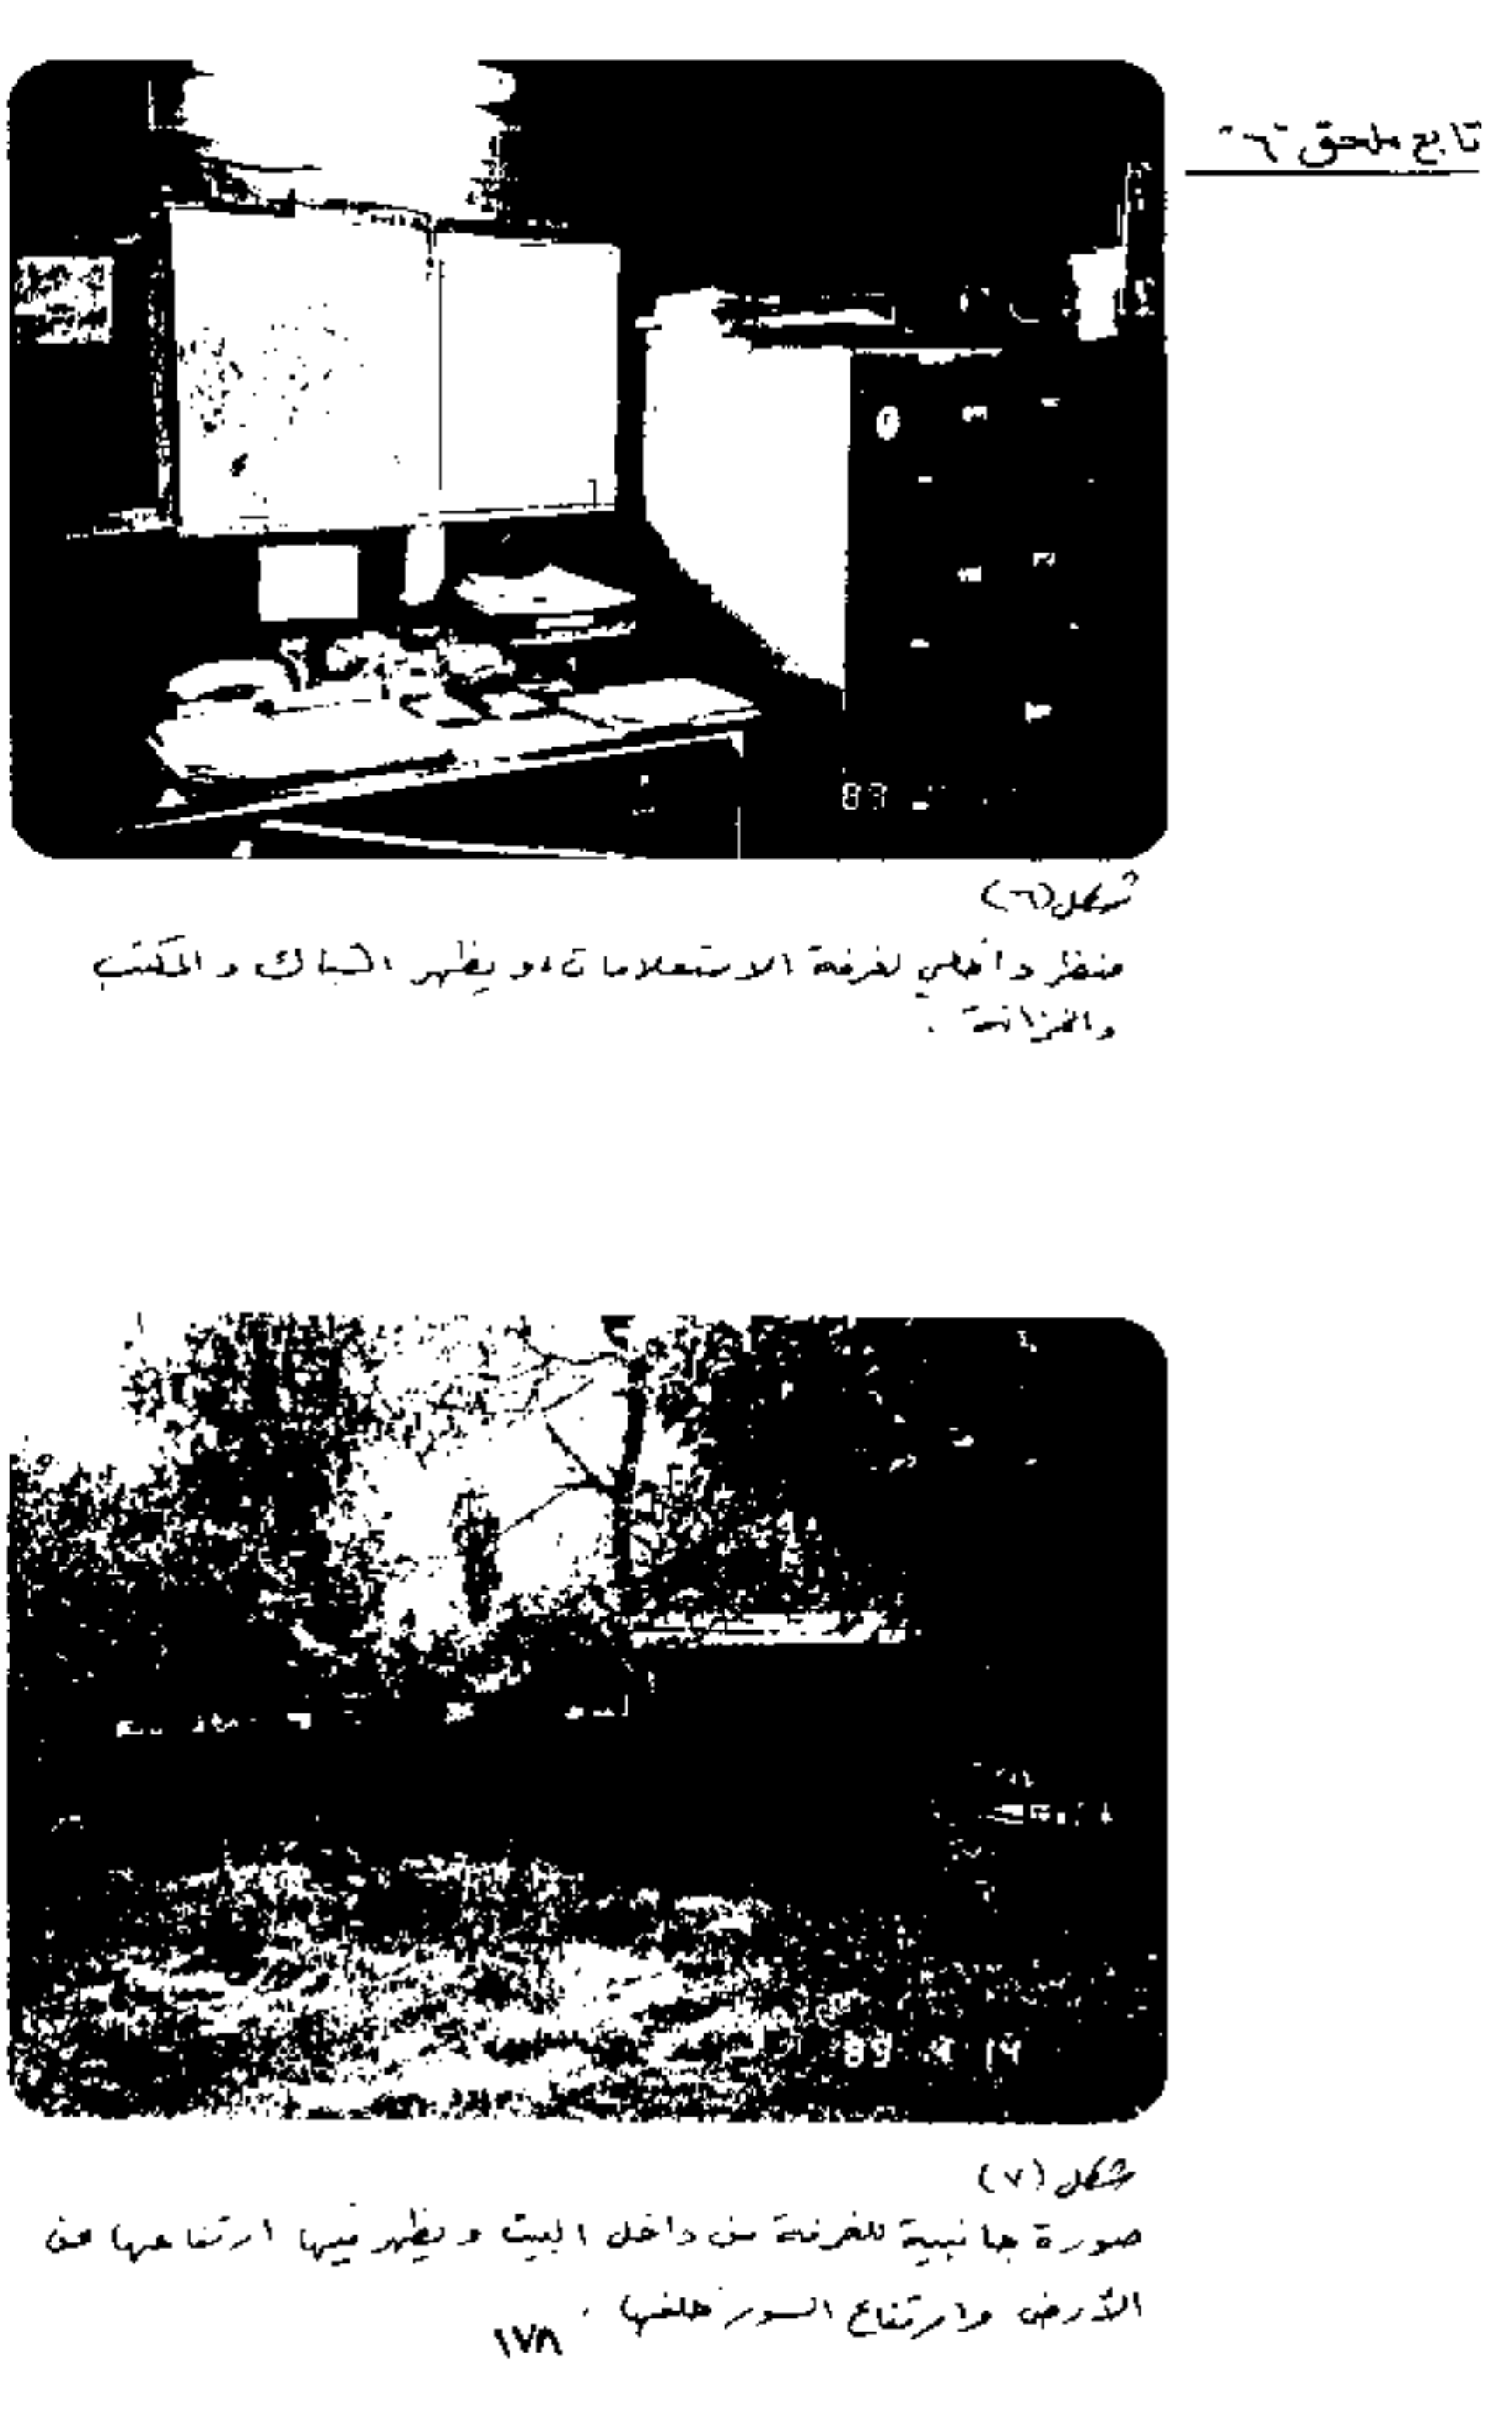 تابع ملحق ٦
شكل (٦)
منظر داخلي لغرفة الاستعلامات ويظهر الشباك والمكتب
والخزانة .
شكل (٧)
صورة جانبية للغرفة من داخل البيت ويظهر فيها ارتفاعها عن
الأرض وارتفاع السور خلفها .
١٧٨